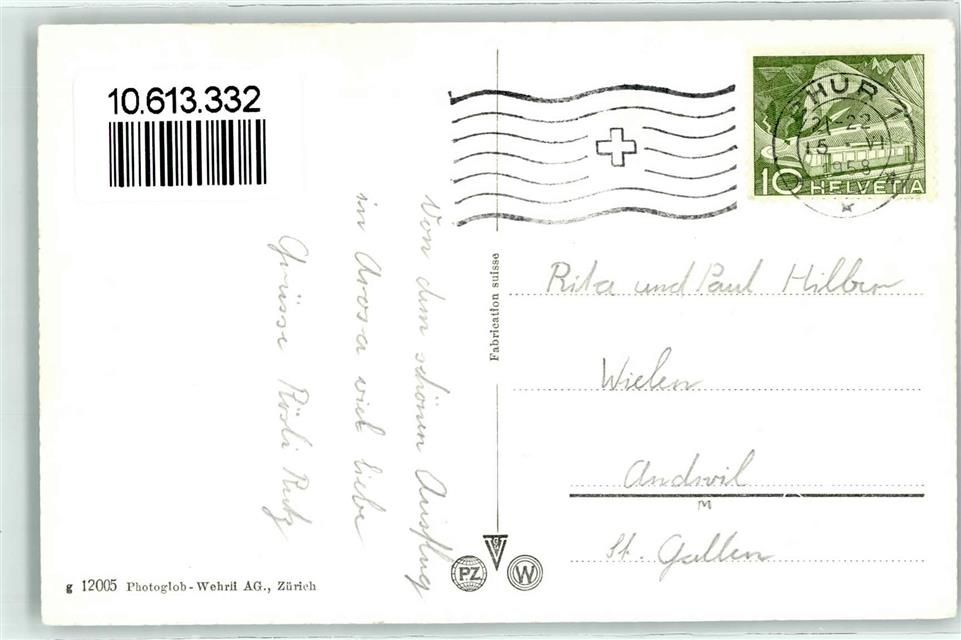 10.613.332
Von dem schönen Ausflug
in Arosa viel liebe
Grüsse Rösli
Fabrication suisse
CHUR 1
21-22
15. VI.
1958
10 HELVETIA
Rita und Paul
Wielen
Andwil
St. Gallen
PZ
W
g 12005 Photoglob-Wehrli AG., Zürich